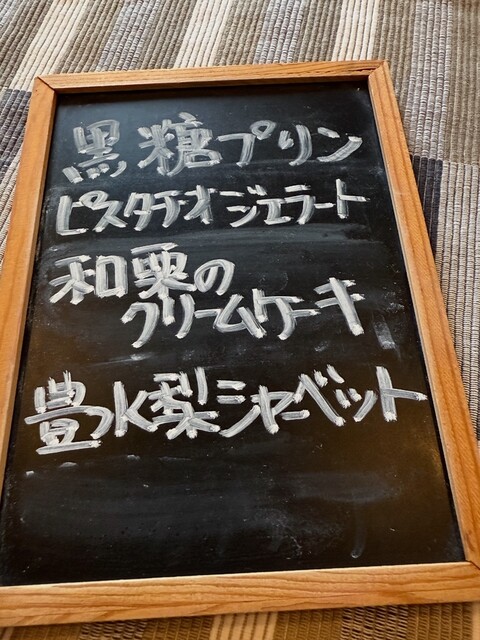 黒糖プリン
ピスタチオジェラート
和栗の
クリームケーキ
豊水梨シャーベット